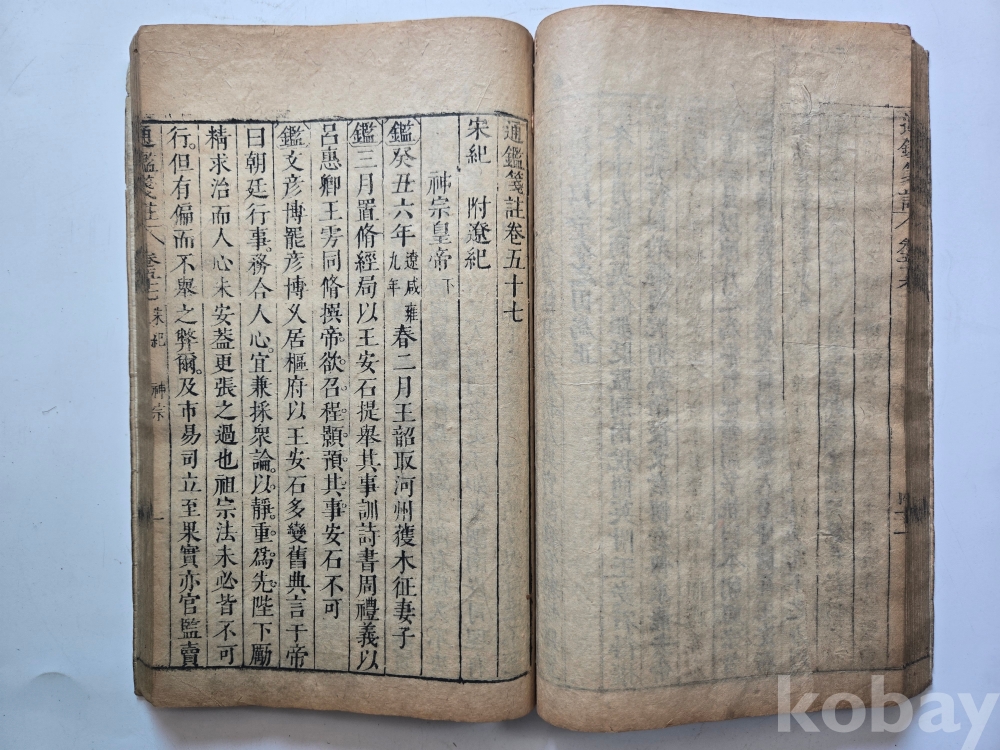 通鑑箋註卷五十七
宋紀 附遼紀
神宗皇帝下
鑑癸丑六年遼咸雍九年春二月王韶取河州獲木征妻子
鑑三月置脩經局以王安石提舉其事訓詩書周禮義以
呂惠卿王雱同脩撰帝欲召程顥預其事安石不可
鑑文彥博罷彥博久居樞府以王安石多變舊典言于帝
曰朝廷行事務合人心宜兼採衆論以靜重爲先陛下勵
精求治而人心未安蓋更張之過也祖宗法未必皆不可
行但有偏而不舉之弊爾及市易司立至果實亦官監賣
通鑑箋註 卷五十七 宋紀 神宗 一
kobay